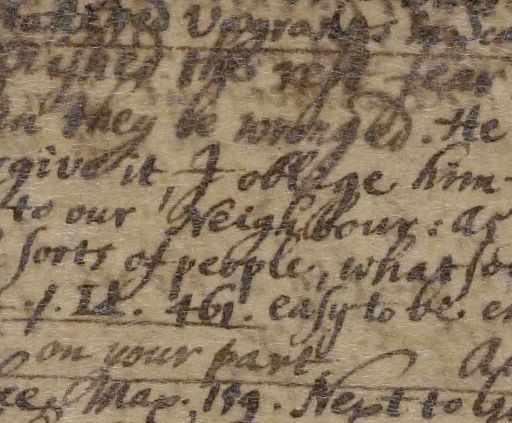 Upgrades
this rest fear
they be wronged. He
give it, I oblige him
to our Neighbour: as
sorts of people, what so
. 1. Lt. 461. easy to be en
on your part. As
Max. 119. Next to